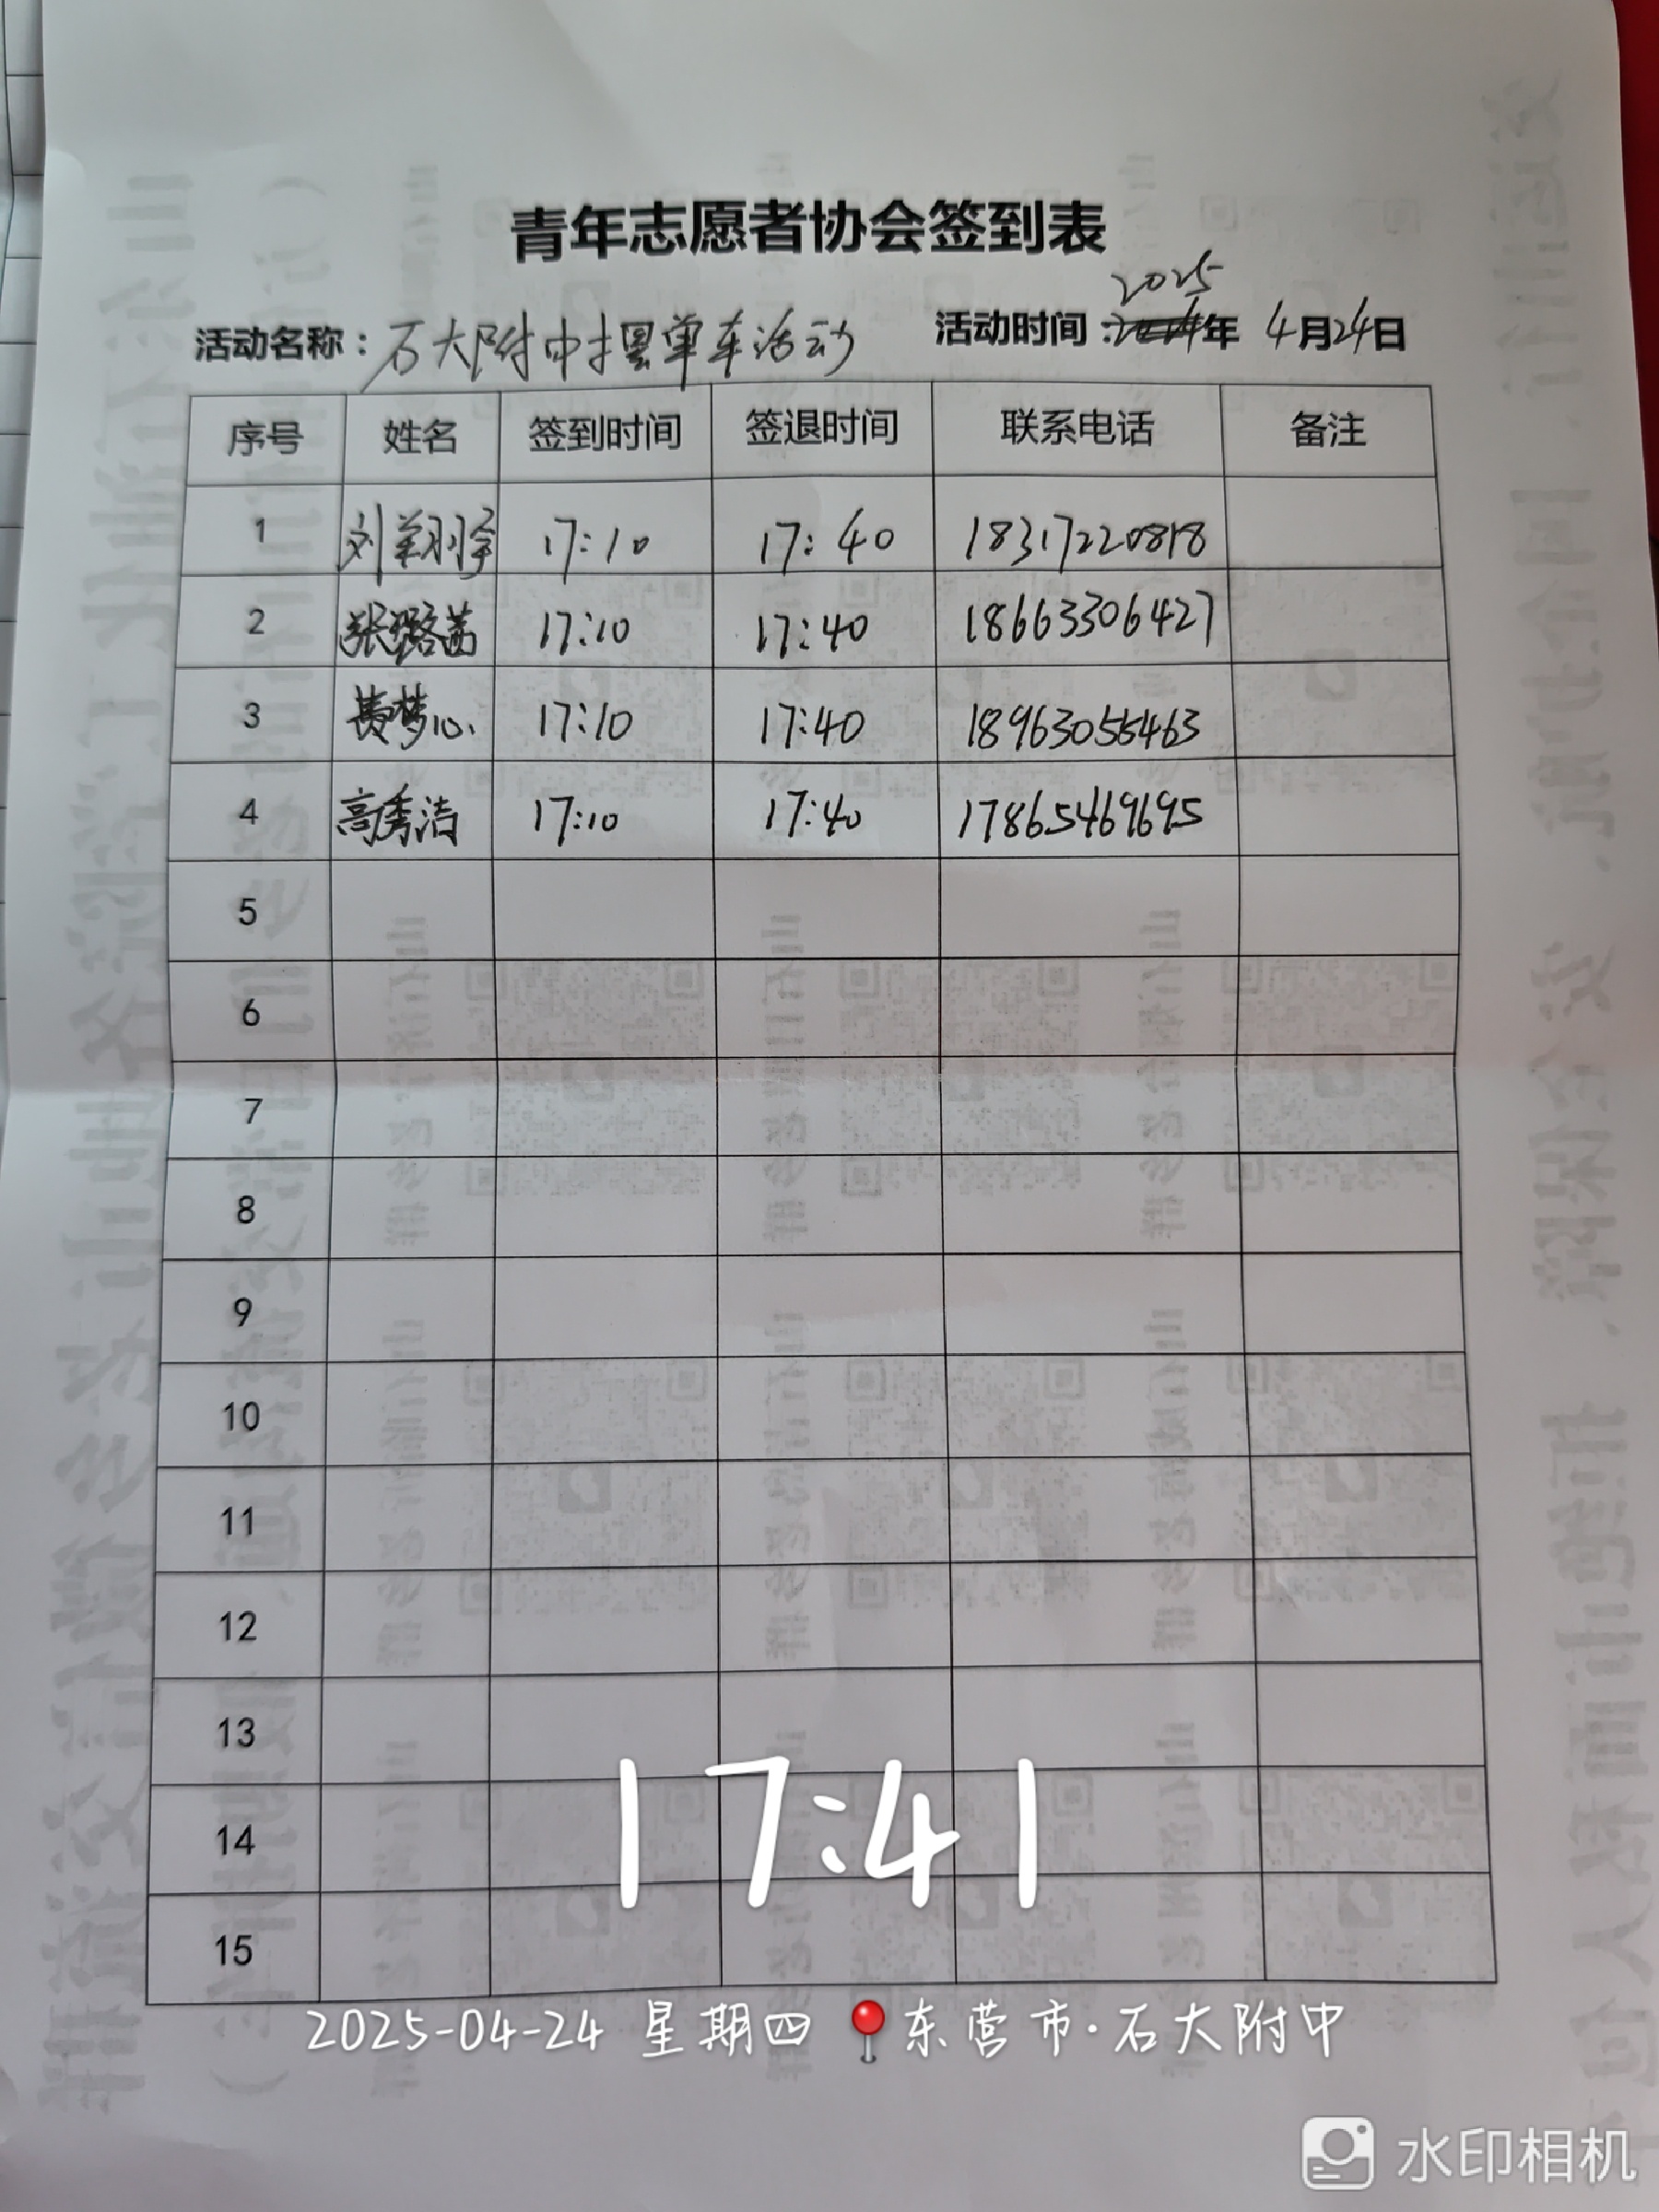 青年志愿者协会签到表
2025
活动名称：石大附中摆单车活动 活动时间：2024年 4月24日
序号 姓名 签到时间 签退时间 联系电话 备注
1 刘翔宇 17:10 17:40 18317220818
2 张璐茜 17:10 17:40 18663306427
3 黄梦心 17:10 17:40 18963055463
4 高秀洁 17:10 17:40 17865469695
5
6
7
8
9
10
11
12
13
14
15
17:41
2025-04-24 星期四 东营市·石大附中
水印相机